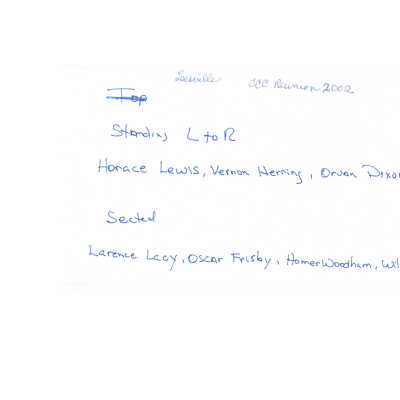 Leesville CCC Reunion 2002
Top
Standing L to R
Horace Lewis, Vernon Herring, Orvan Dixo
Seated
Larence Lacy, Oscar Frisby, Homer Woodham, Wil